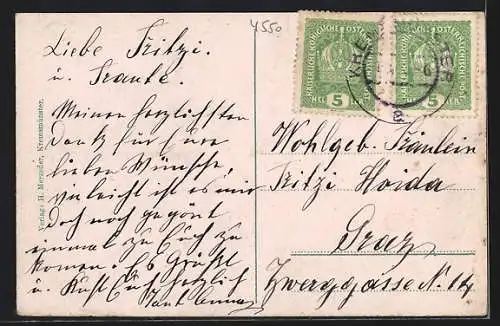 4550
Liebe Fritzi
u. Trante.
Meinen herzlichsten
Dank für Eure
lieben Wünsche,
vielleicht ist es mir
doch noch gegönt
einmal zu Euch zu
komen. Es Grüßt
u. Küßt Euch herzlich
Tant Emma
Verlag: H. Mercader, Kremsmünster.
KAISERLICHE KÖNIGLICHE ÖSTERREICHISCHE POST
HELLER 5 HELLER
KAISERLICHE KÖNIGLICHE ÖSTERREICHISCHE POST
5
Wohlgeb. Fräulein
Fritzi Hoida
Graz
Zwerggasse N. 14